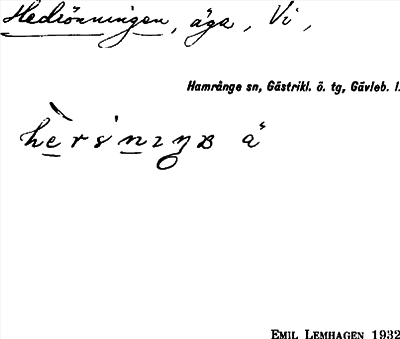 Hedrönningen, äga, Vi,
Hamrånge sn, Gästrikl. ö. tg, Gävleb. l.
EMIL LEMHAGEN 1932